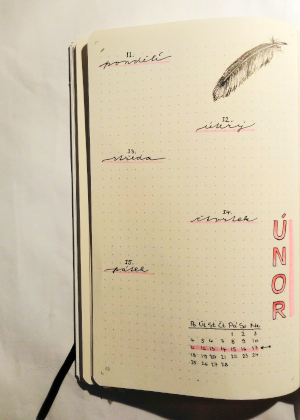 11.
pondělí
12.
úterý
13.
středa
14.
čtvrtek
15.
pátek
ÚNOR
Po Út St Čt Pá So Ne
1 2 3
4 5 6 7 8 9 10
11 12 13 14 15 16 17
18 19 20 21 22 23 24
25 26 27 28